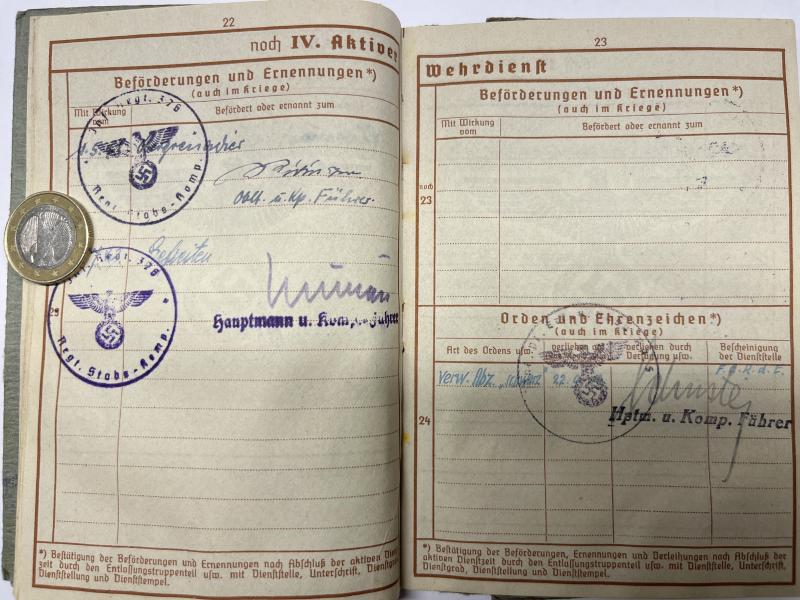 22
noch IV. Aktiver
Beförderungen und Ernennungen*)
(auch im Kriege)
Mit Wirkung vom
Befördert oder ernannt zum
Inf. Regt. 376
Regt. Stabs-Komp.
Oblt. u. Kp. Führer.
Gefreiten
Regt. 376
Regt. Stabs-Komp.
Hauptmann u. Komp.-Führer
23
*) Bestätigung der Beförderungen und Ernennungen nach Abschluß der aktiven
zeit durch den Entlassungstruppenteil usw. mit Dienststelle, Unterschrift, Dienstgrad,
Dienststellung und Dienststempel.
23
Wehrdienst
Beförderungen und Ernennungen*)
(auch im Kriege)
Mit Wirkung vom
Befördert oder ernannt zum
noch
23
Orden und Ehrenzeichen*)
(auch im Kriege)
Art des Ordens usw.
verliehen
verliehen durch Verfügung usw.
Bescheinigung der Dienststelle
Verw. Abz. „schwarz" 22.
Hptm. u. Komp. Führer
24
*) Bestätigung der Beförderungen, Ernennungen und Verleihungen nach Abschluß der
aktiven Dienstzeit durch den Entlassungstruppenteil usw. mit Dienststelle, Unterschrift,
Dienstgrad, Dienststellung und Dienststempel.